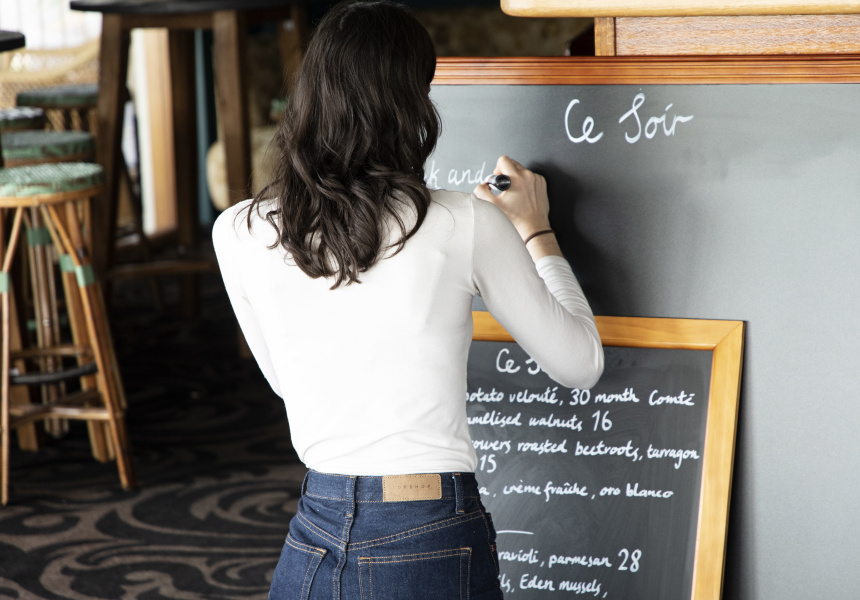 Ce Soir
k and
Ce S
potato velouté, 30 month Comté
mélised walnuts 16
rowers roasted beetroots, tarragon
15
a, crème fraîche, oro blanco
ravioli, parmesan 28
ls, Eden mussels,